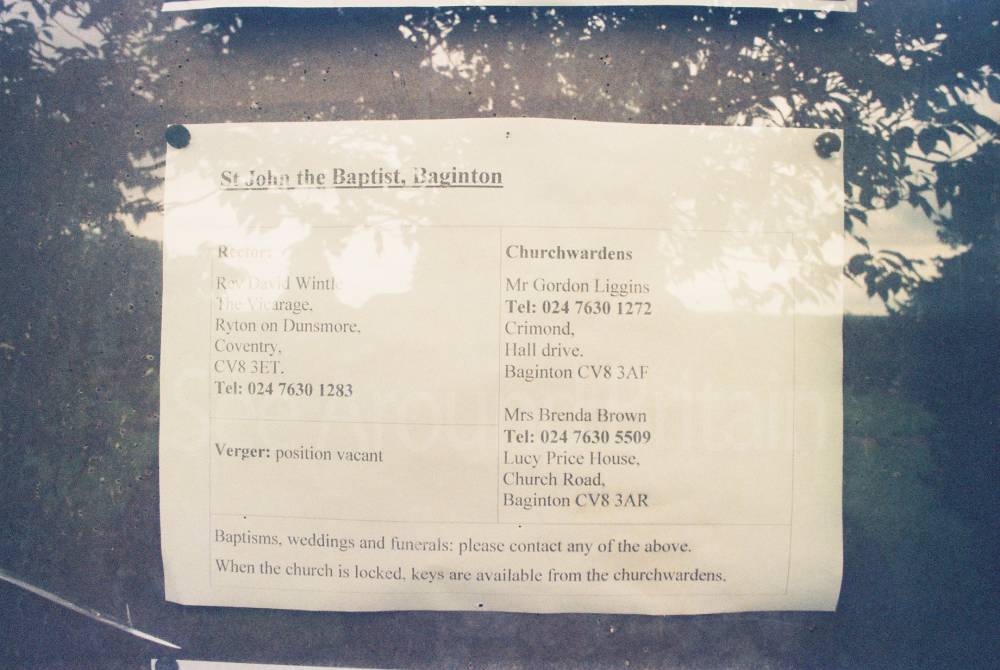 St John the Baptist, Baginton
Rector:
Rev David Wintle
The Vicarage,
Ryton on Dunsmore,
Coventry,
CV8 3ET.
Tel: 024 7630 1283
Verger: position vacant
Churchwardens
Mr Gordon Liggins
Tel: 024 7630 1272
Crimond,
Hall drive.
Baginton CV8 3AF
Mrs Brenda Brown
Tel: 024 7630 5509
Lucy Price House,
Church Road,
Baginton CV8 3AR
Baptisms, weddings and funerals: please contact any of the above.
When the church is locked, keys are available from the churchwardens.